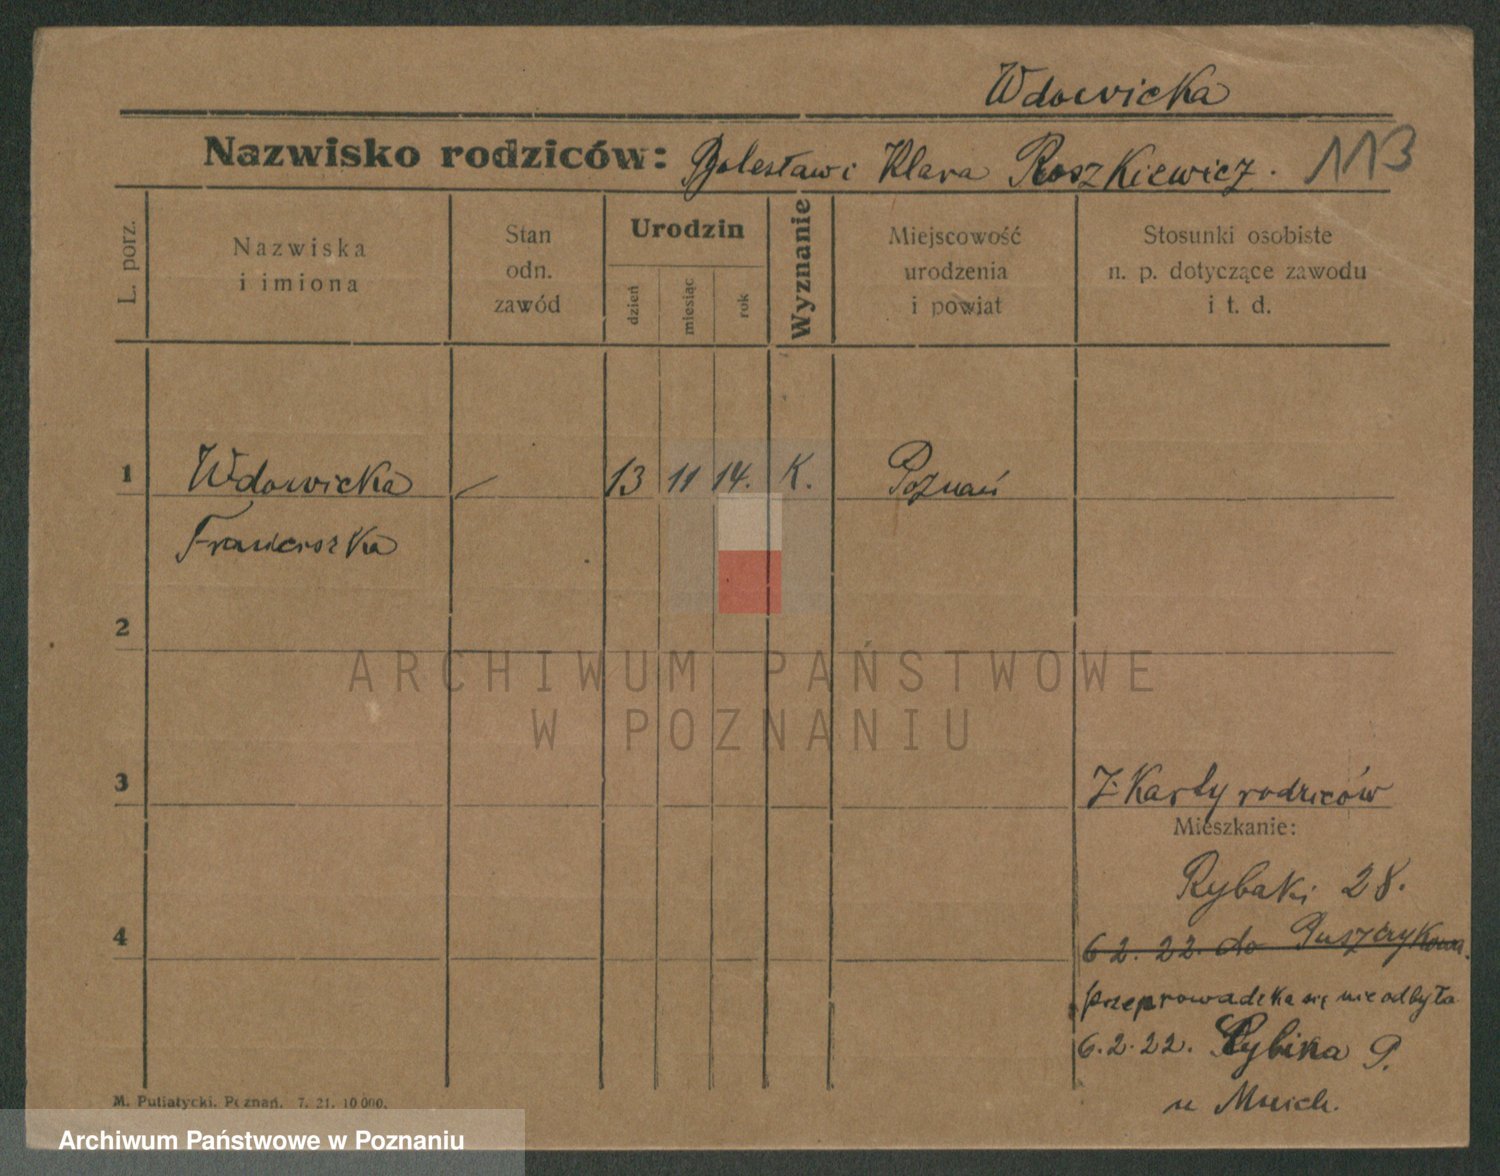 Wdowicka
Nazwisko rodziców: Bolesław i Klara Roszkiewicz. 113
L. porz.
Nazwiska
i imiona
Stan
odn.
zawód
Urodzin
dzień
miesiąc
rok
Wyznanie
Miejscowość
urodzenia
i powiat
Stosunki osobiste
n. p. dotyczące zawodu
i t. d.
1 Wdowicka — 13 11 14. K. Poznań
Franciszka
2
ARCHIWUM PAŃSTWOWE
W POZNANIU
3
Z Karty rodziców
Mieszkanie:
Rybaki 28.
4
6 2. 22. do
przeprowadzka się nie odbyła
6.2.22. P.
u
M. Putiatycki. Poznań. 7. 21. 10 000.
Archiwum Państwowe w Poznaniu